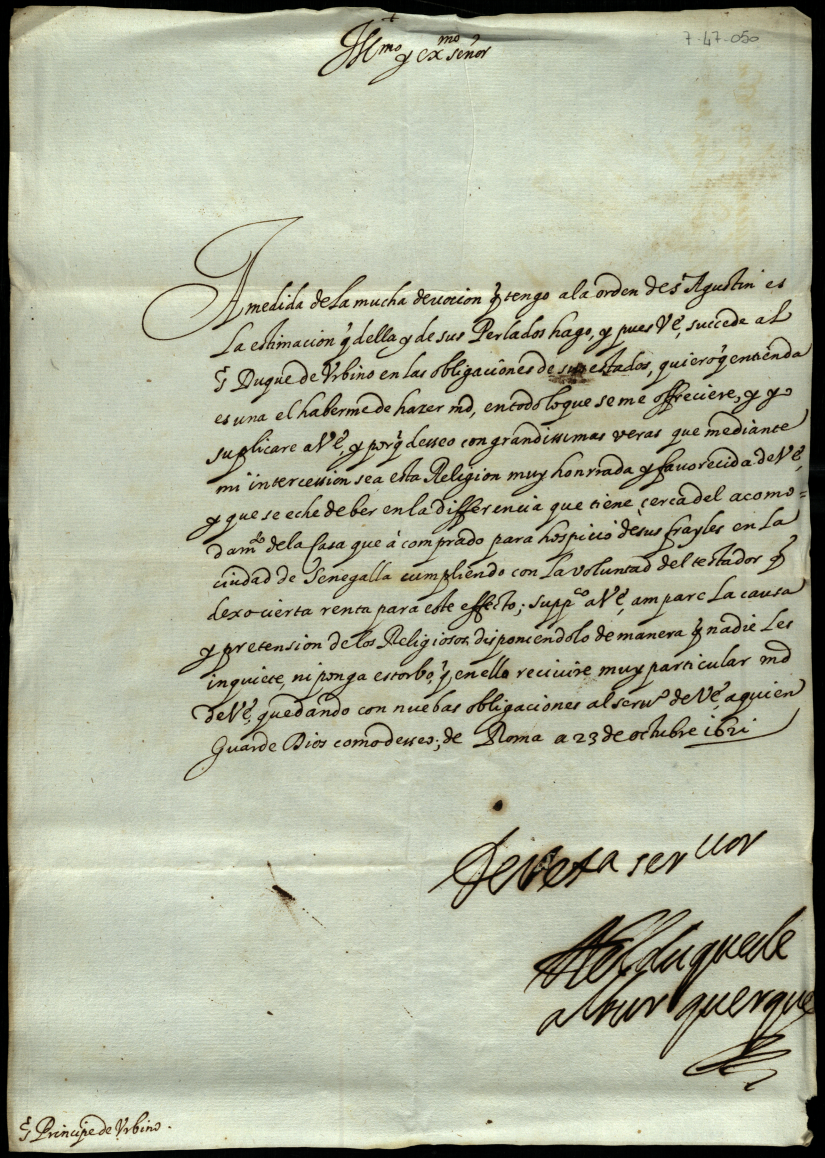 7-47-050
Ill.mo y ex.mo señor
A medida de la mucha devocion q̃ tengo a la orden de s. Agustin es
La estimacion q̃ della y de sus Perlados hago, y pues Vẽ, succede al
s.r Duque de Vrbino en las obligaciones de sus estados, quiero q̃ entienda
es una el haberme de hazer md, en todo lo que se me offreciere, y yo
suplicare a Vẽ, y porq̃ desseo con grandissimas veras que mediante
mi intercession sea esta Religion muy honrrada y favorecida de Vẽ,
y que se eche de ber en la differencia que tiene cerca del acomo=
dam.to de la Casa que à comprado para hospicio de sus frayles en La
ciudad de Senegalla cumpliendo con La voluntad del testador q̃
dexo cierta renta para este effecto; supp.co a Vẽ, ampare La causa
y pretension de los Religiosos, disponiendolo de manera q̃ nadie Les
inquiete, ni ponga estorbo, q̃ en ello recivire muy particular md
de Vẽ, quedando con nuebas obligaciones al seru.o de Vẽ, a quien
Guarde Dios como desseo; de Roma a 23 de octubre 1621
seruor
el duque de
alburquerque
s.r Principe de Vrbino.